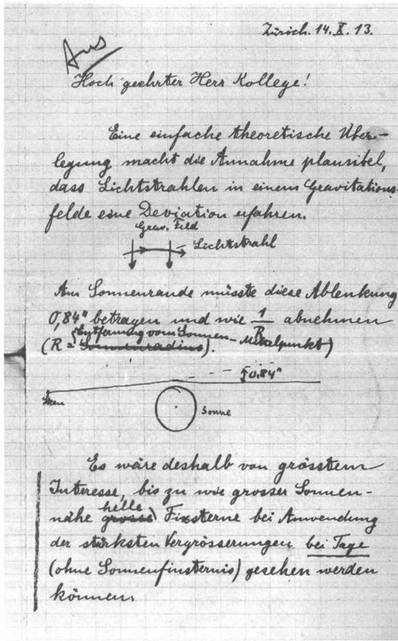 Zürich. 14. X. 13.
Hoch geehrter Herr Kollege!
Eine einfache theoretische Über-
legung macht die Annahme plausibel,
dass Lichtstrahlen in einem Gravitations-
felde eine Deviation erfahren.
Grav. Feld
Lichtstrahl
Am Sonnenrande müsste diese Ablenkung
0,84" betragen und wie 1/R abnehmen
(R = Sonnenradius Entfernung vom Sonnen-Mittelpunkt)
0,84"
Stern
Sonne
Es wäre deshalb von grösstem
Interesse, bis zu wie grosser Sonnen-
nähe grosse helle Fixsterne bei Anwendung
der stärksten Vergrösserungen bei Tage
(ohne Sonnenfinsternis) gesehen werden
können.